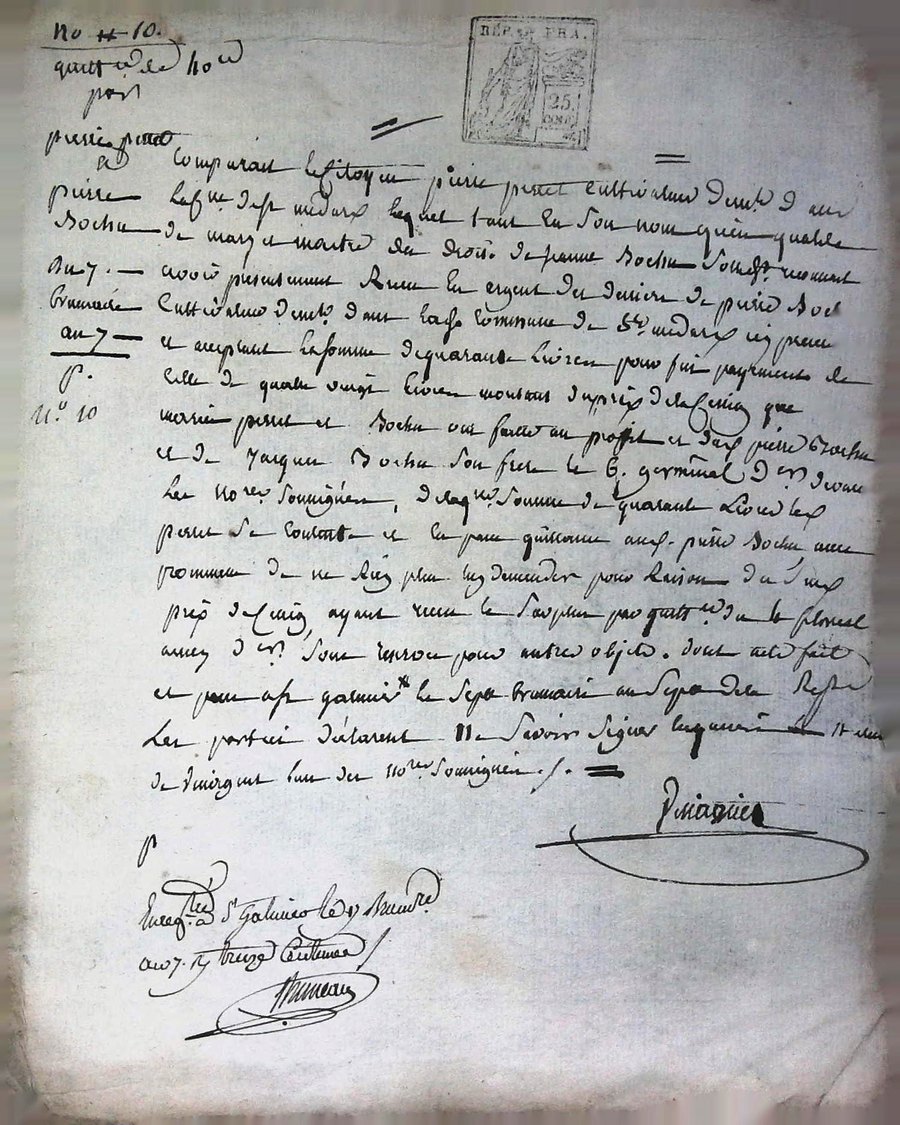 no 10.
quittce de 40 ₶
par
pierre peret
a
pierre
Bochu
Du 7.
brumaire
an 7
p.
n.o 10
RÉP. FRA.
25.
CENT.
Comparait le Citoyen pierre peret Cultivateur demt. d
la Cne. de st medard lequel tant en son nom qu'en qualité
de mary et maitre des droits de jeanne Bochu
avoir presentement Recu en argent des deniers de pierre Boch
Cultivateur demt. dans la Commune de St. medard icy present
et acceptant la somme de quarante Livres pour fin payement de
Celle de quatre vingt livres montant du prix de la que
mariée peret et Bochu ont faitte au proffit et dud. pierre Bochu
et de Jacques Bochu son frere le 6. germinal der. devant
Les nores. soussignés, de laqle. somme de quarante Livres led.
peret se contente et en passe quittance aud. pierre Bochu, avec
promesse de ne Rien plus luy demander pour Raison du susd.
prix de ayant recu le surplus par quittce. du floreal
aussy der. sans renvoi pour autres objets. dont acte fait
et passé a st galmier le sept brumaire an sept de la Repe.
Les parties déclarent ne savoir signer enquis
de vinagnet l'un des nores. soussignés ./.
Vinagnet
p
Enregtré. a St Galmier le 17 Brumre.
an 7. Rç treize Centimes
Bruneau